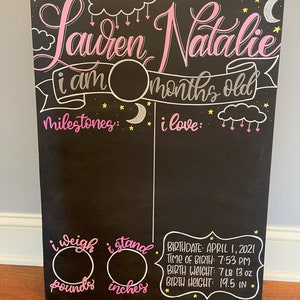 Lauren Natalie
i am months old
milestones: i love:
i weigh i stand
pounds inches
BIRTHDATE: APRIL 1, 2021
TIME OF BIRTH: 7:53 PM
BIRTH WEIGHT: 7 LB 13 OZ
BIRTH HEIGHT: 19.5 IN